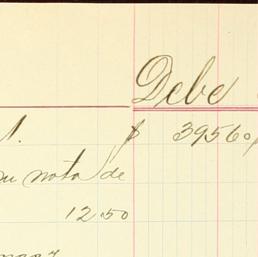 Debe
1. $ 39560
su nota de
12.50